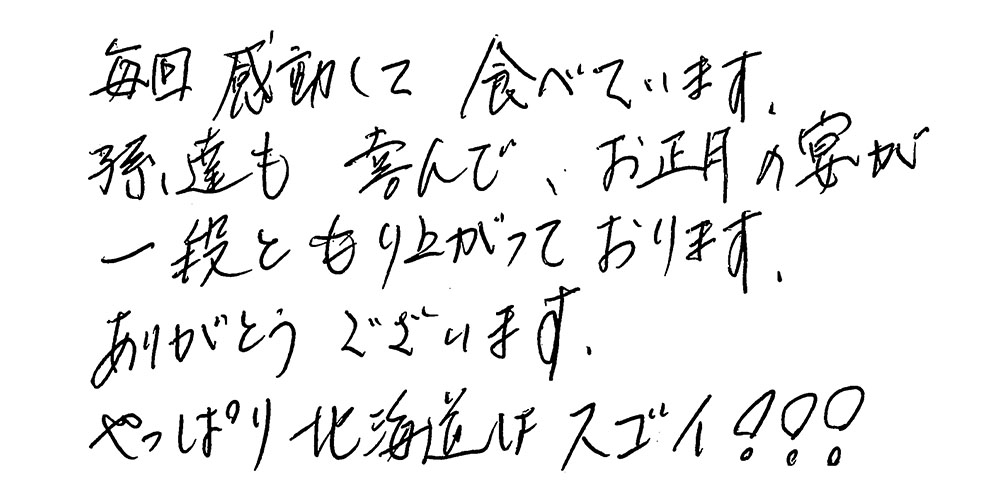 毎回感動して食べています.
孫達も喜んで、お正月の宴が
一段ともり上がっております.
ありがとうございます.
やっぱり北海道はスゴイ!!!